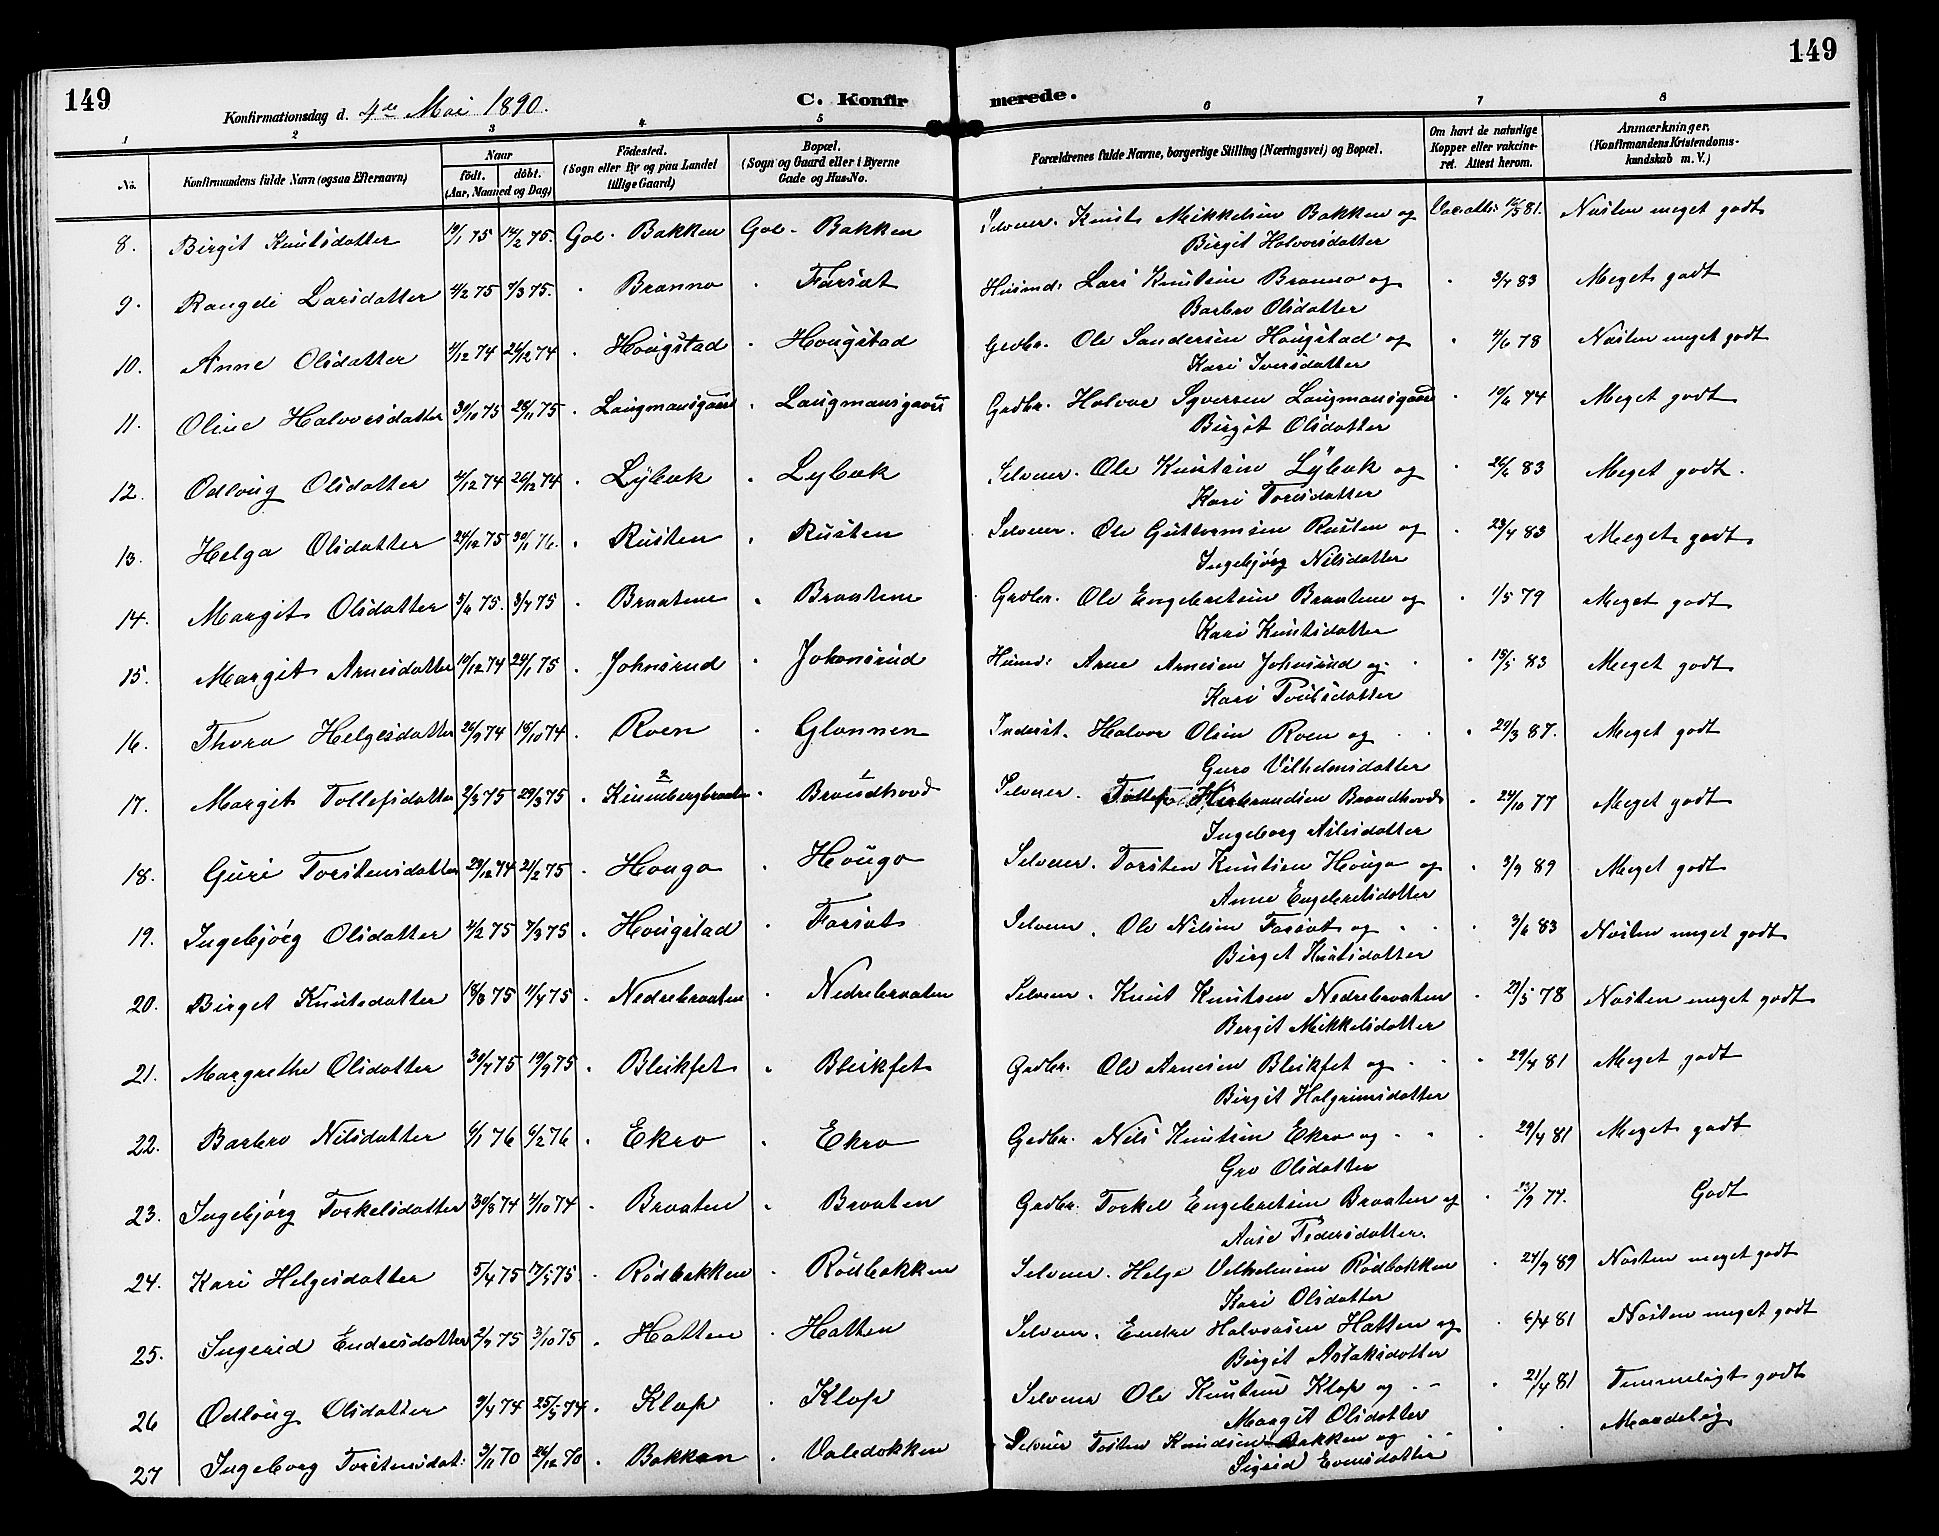 149
149
Konfirmationsdag d. 4de Mai 1890.
C. Konfirmerede.
1 2 3 4 5 6 7 8
No. Konfirmandens fulde Navn (ogsaa Efternavn) Naar födt. döbt. (Aar, Maaned og Dag) Födested. (Sogn eller By og paa Landet tillige Gaard) Bopæl. (Sogn og Gaard eller i Byerne Gade og Hus-No. Forældrenes fulde Navne, borgerlige Stilling (Næringsvei) og Bopæl. Om havt de naturlige Kopper eller vakcineret. Attest herom. Anmærkninger. (Konfirmandens Kristendomskundskab m. V.)
8. Birgit Knutsdatter 19/1 75 14/2 75. Gol. Bakken Gol. Bakken Selveier. Knut Mikkelsen Bakken og Vac.att: 12/5 81. Næsten meget godt
Birgit Halvorsdatter
9. Rangdi Larsdatter 4/2 75 7/3 75. Branno Farsæt Husmd: Lars Knutsen Branno og 3/4 83 Meget godt
Barbro Olsdatter
10. Anne Olsdatter 4/12 74 26/12 74 Hougstad Hougstad Grdbr. Ole Sandersen Hougstad og 4/6 78 Næsten meget godt
Kari Iversdatter
11. Oline Halvorsdatter 30/10 75 28/11 75 Laugmansgaard Laugmansgaard Grdbr. Halvor Syversen Laugmansgaard 19/6 74 Meget godt
Birgit Olsdatter
12. Odloug Olsdatter 4/12 74 26/12 74 Lybæk Lybæk Selveier. Ole Knutsen Lybæk og 26/6 83 Meget godt.
Kari Toresdatter
13. Helga Olsdatter 24/12 75 30/1 76. Rusten Rusten Selveier. Ole Guttormsen Rusten og 23/4 83 Meget godt
Ingebjørg Nilsdatter
14. Margit Olsdatter 5/6 75. 3/7 75 Braatene Braatene Grdbr. Ole Engebretsen Braatene og 1/5 79 Meget godt
Kari Knutsdatter
15. Margit Arnesdatter 19/12 74 24/1 75 Johnsrud Johnsrud Husmd: Arne Arnesen Johnsrud og 18/5 83 Meget godt
Kari Poulsdatter
16. Thora Helgesdatter 26/9 74 18/10 74 Roen Glonnen Inderst. Halvor Olsen Roen og 29/3 87. Meget godt
Guro Vilhelmsdatter
17. Margit Tollefsdatter 2/3 75 29/3 75 Braudhovd Selveier. Tollef Braudhovd 24/10 77 Meget godt
Ingeborg Aslesdatter
18. Guri Torstensdatter 29/12 74 21/2 75 Houga Houga Selveier. Torsten Knutsen Houga og 3/9 89 Meget godt
Anne Engebretsdatter
19. Ingebjörg Olsdatter 2/2 75 7/3 75 Hougstad Farsæt Selveier. Ole Nilsen Farsæt og 3/6 83 Næsten meget godt
Birget Knutsdatter
20. Birget Knutsdatter 18/3 75 11/4 75 Nedrebraaten Nedrebraaten Selveier. Knut Knutsen Nedrebraaten 29/5 78 Næsten meget godt
Bergit Mikkelsdatter
21. Margrethe Olsdatter 30/7 75 19/9 75 Bleikfet Bleikfet Grdbr. Ole Arnesen Bleikfet og 29/4 81 Meget godt
Birgit Halgrimsdatter
22. Barbro Nilsdatter 6/1 76 6/2 76 Ekro Ekro Grdbr. Nils Knutsen Ekro og 29/4 81 Meget godt
Gro Olsdatter
23. Ingebjørg Torkelsdatter 30/8 74 4/10 74 Braaten Braaten Grdbr. Torkel Engebretsen Braaten og 13/9 77. Godt
Aase Pedersdatter.
24. Kari Helgesdatter 5/4 75 17/5 75 Rödbakken Rödbakken Selveier. Helge Velhelmsen Rödbakken 24/9 89 Næsten meget godt
Kari Olsdatter
25. Ingerid Endresdatter 2/9 75 3/10 75 Hatten Hatten Selveier. Endre Halvorsen Hatten og 6/4 81 Næsten meget godt
Birgit Aslaksdatter
26 Odloug Olsdatter 9/4 74 25/5 74 Klop Klop Selveier Ole Knutsen Klop og 21/4 81 Temmeligt godt
Margit Olsdatter
27 Ingeborg Torstensdat: 3/11 70 26/12 70 Bakken Valedokken Selveier Tosten Knudsen Bakken og Maadelig
Sigrid Evensdatter